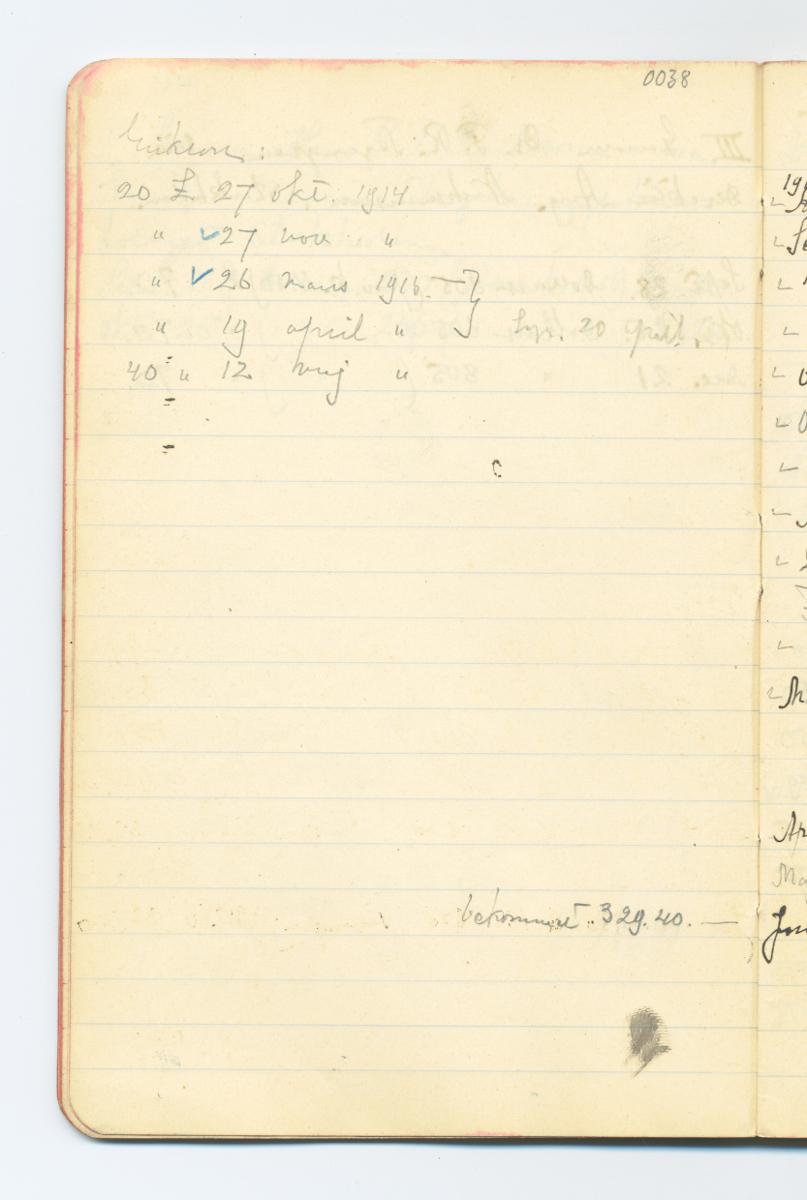 0038
Erikson :
20 £ 27 okt. 1914
" ✓27 nov "
" ✓26 mars 1916. — }
" 19 april " 20
40 " 12 maj "
bekommet 329.40. —